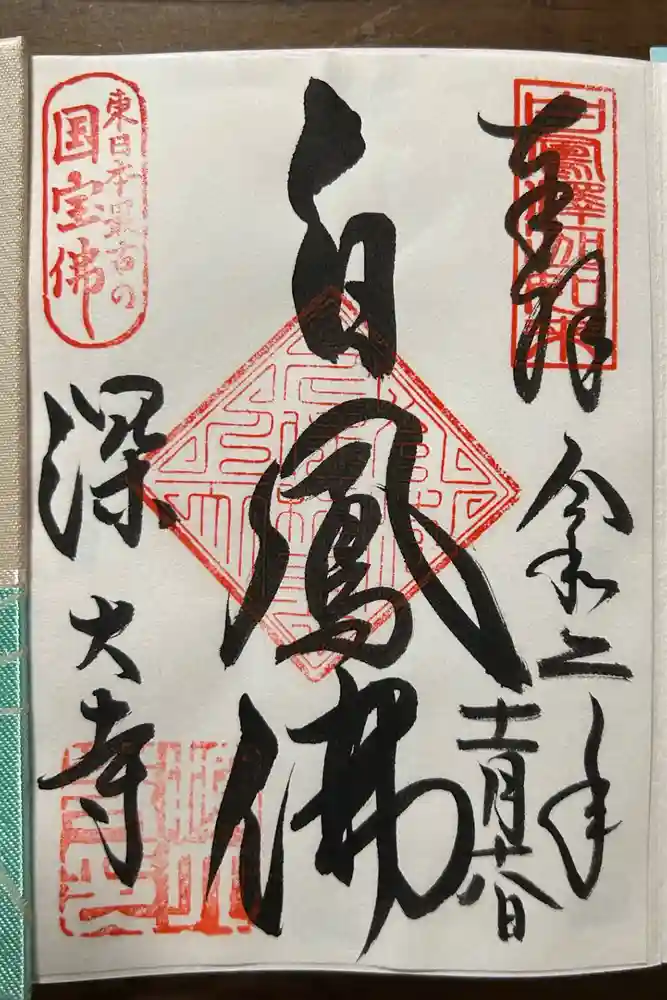 奉拝
白鳳釋迦如来
令和二年
十一月十八日
白鳳佛
東日本最古の
国宝佛
深大寺